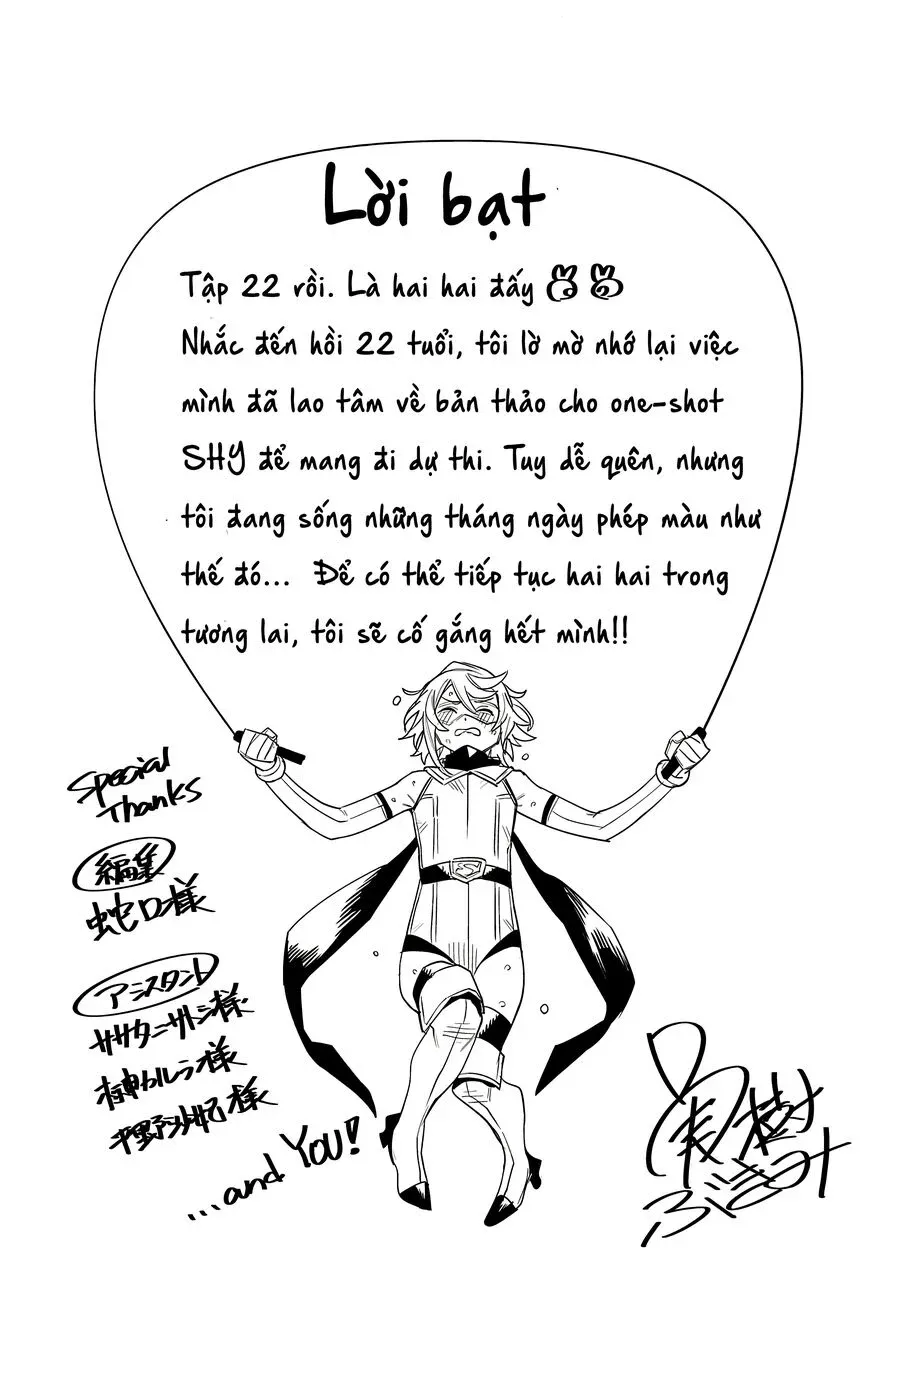 Lời bạt
Tập 22 rồi. Là hai hai đấy
Nhắc đến hồi 22 tuổi, tôi lờ mờ nhớ lại việc
mình đã lao tâm về bản thảo cho one-shot
SHY để mang đi dự thi. Tuy dễ quên, nhưng
tôi đang sống những tháng ngày phép màu như
thế đó... Để có thể tiếp tục hai hai trong
tương lai, tôi sẽ cố gắng hết mình!!
Special
Thanks
編集
蛇口様
アシスタント
ササタニサトシ様
榊カルラ様
平野沙妃様
...and YOU!
S
実樹
ぶきみ